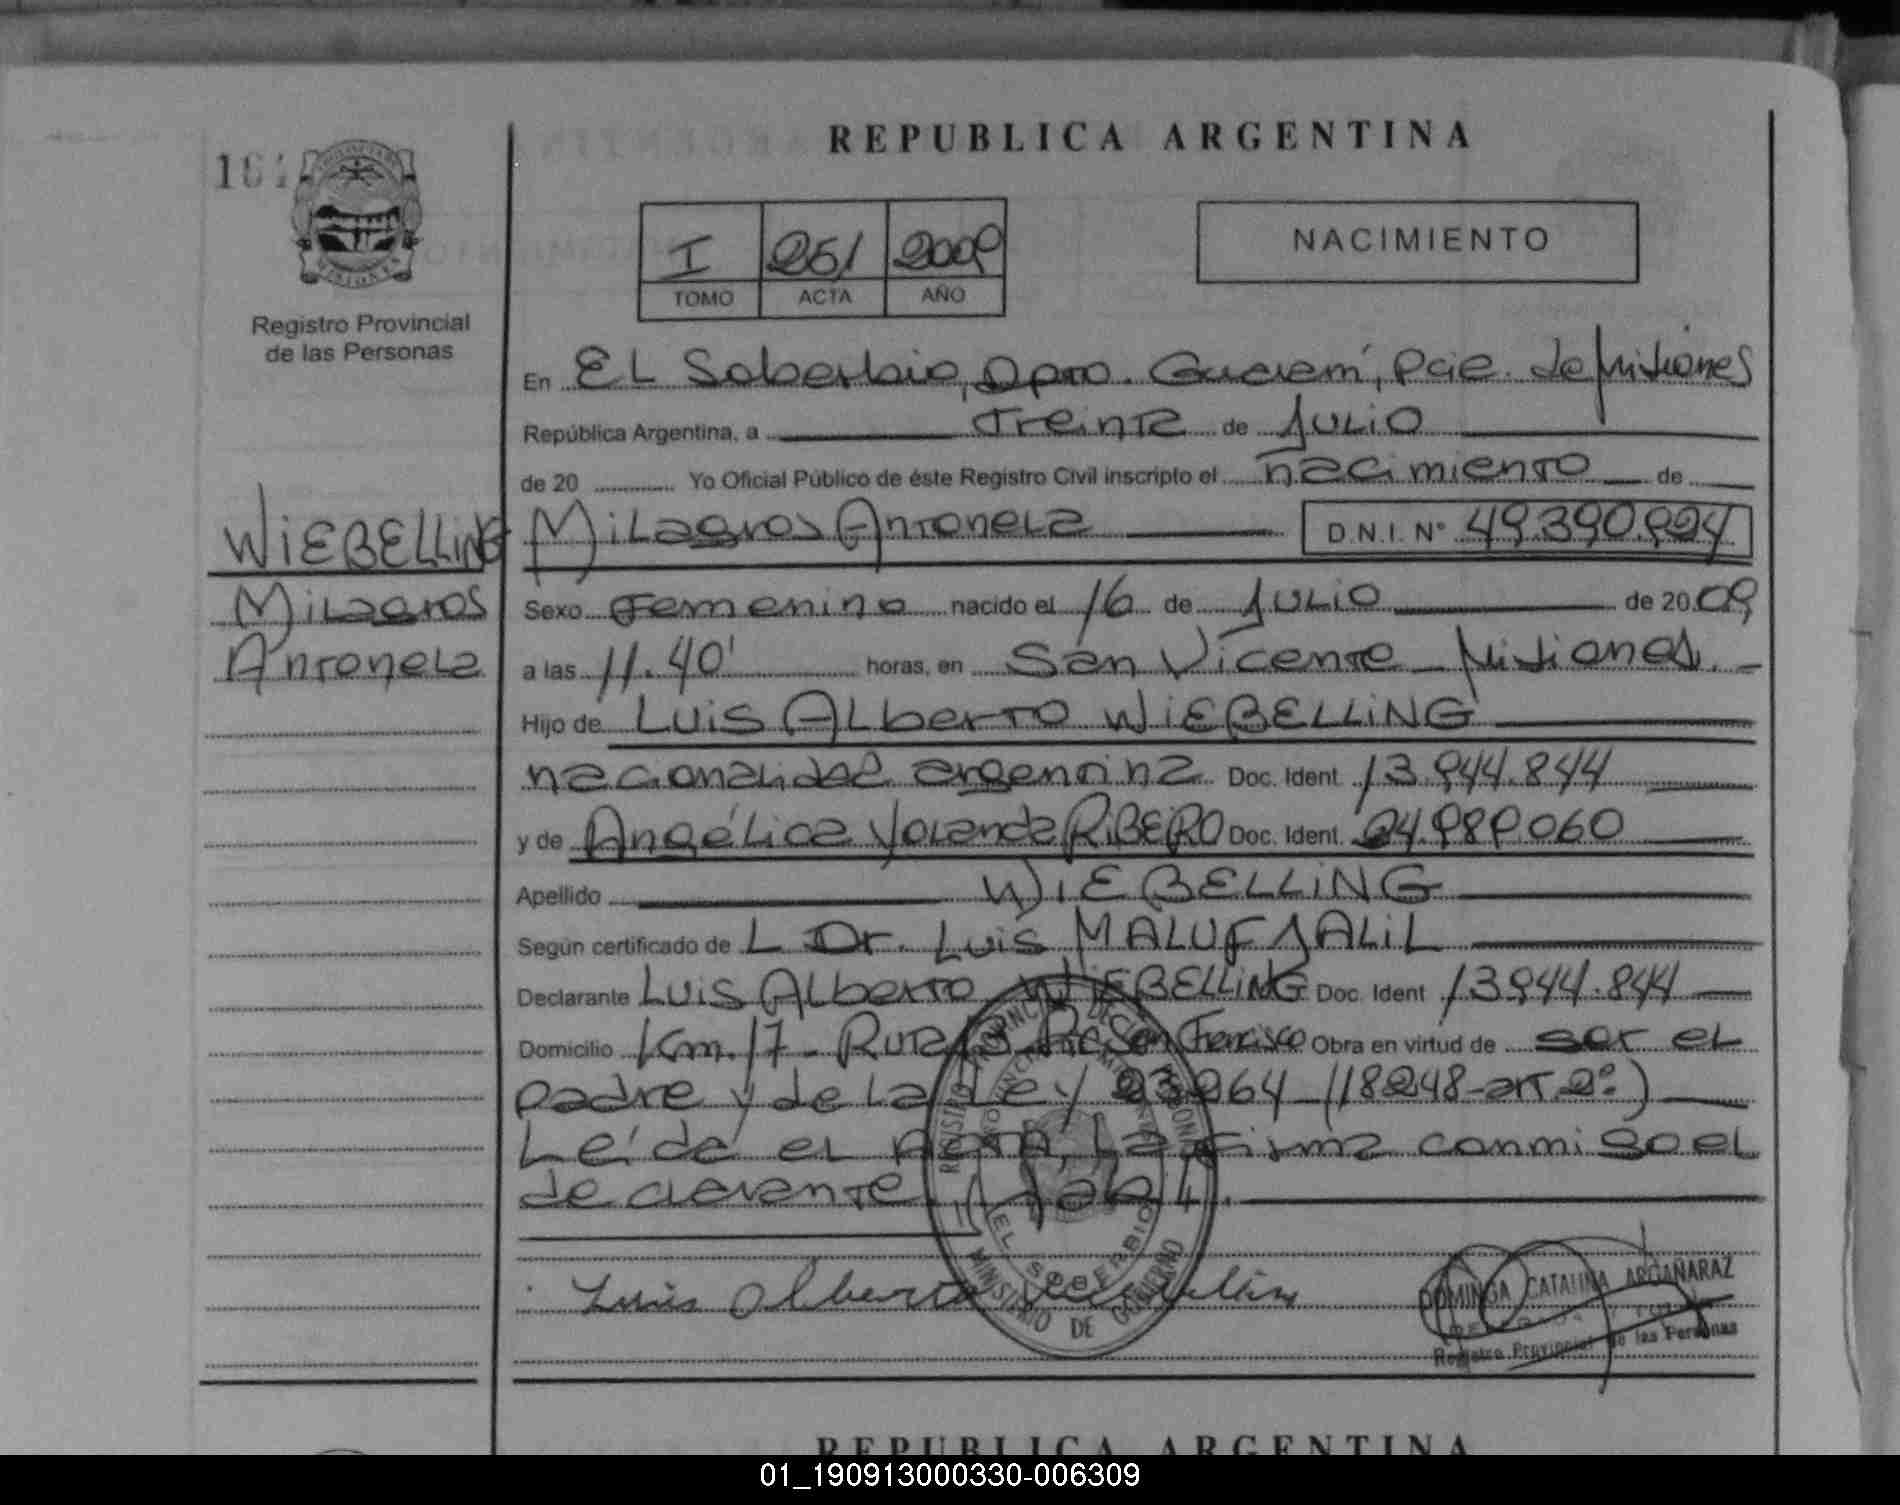 REPUBLICA ARGENTINA
MISIONES
Registro Provincial
de las Personas
I 261 2009
TOMO ACTA AÑO
NACIMIENTO
En EL Soberbio, Dpto. Guaraní, Pcia. de Misiones
República Argentina, a Treinta de JULIO
de 20 Yo Oficial Público de éste Registro Civil inscripto el nacimiento de
WIEBELLING
Milagros
Antonela
Milagros Antonela D.N.I. Nº
Sexo Femenino nacido el 16 de JULIO de 2009
a las 11.40' horas, en San Vicente - Misiones. -
Hijo de Luis Alberto WIEBELLING
nacionalidad argentina Doc. Ident. 13.944.844
y de Angélica Yolanda RIBEIRO Doc. Ident. 24.989.060
Apellido WIEBELLING
Según certificado de L Dr. Luis MALUF JALIL
Declarante Luis Alberto WIEBELLING Doc. Ident 13944.844
Domicilio Km. 17 - Ruta San Francisco Obra en virtud de ser el
padre y de la Ley 23264 - (18248-art. 2º.)
Leída el Acta, la firma conmigo el
declarante.
Luis Alberto
REGISTRO PROVINCIAL DE
EL SOBERBIO
MINISTERIO DE GOBIERNO
DOMINGA CATALINA ARGAÑARAZ
Registro Provincial de las Personas
REPUBLICA ARGENTINA
01_190913000330-006309